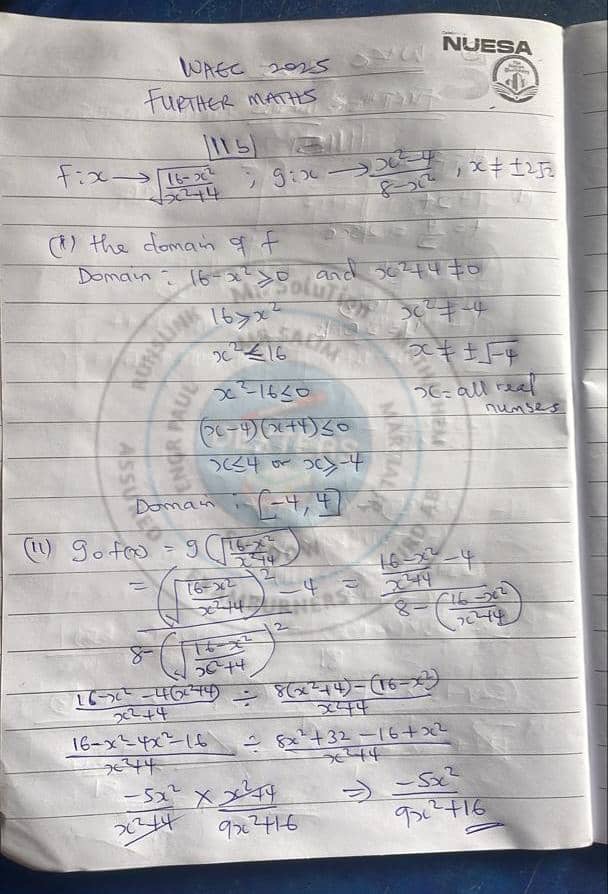 NUESA
WAEC 2025
FURTHER MATHS
11b
f:x → √((16-x²)/(x²+4)) ; g:x → (x²-4)/(8-x²), x ≠ ±2√2
(i) the domain of f
Domain: 16-x² ≥ 0 and x²+4 ≠ 0
16 ≥ x² x² ≠ -4
x² ≤ 16 x ≠ ±√-4
x²-16 ≤ 0 x = all real
numbers
(x-4)(x+4) ≤ 0
x ≤ 4 or x ≥ -4
Domain : [-4, 4]
(ii) g∘f(x) = g(√((16-x²)/(x²+4)))
= ((√((16-x²)/(x²+4)))² - 4)/(8-(√((16-x²)/(x²+4)))²) = ((16-x²)/(x²+4) - 4)/(8-((16-x²)/(x²+4)))
(16-x²-4(x²+4))/(x²+4) ÷ (8(x²+4)-(16-x²))/(x²+4)
(16-x²-4x²-16)/(x²+4) ÷ (8x²+32-16+x²)/(x²+4)
-5x²/(x²+4) × (x²+4)/(9x²+16) ⇒ -5x²/(9x²+16)